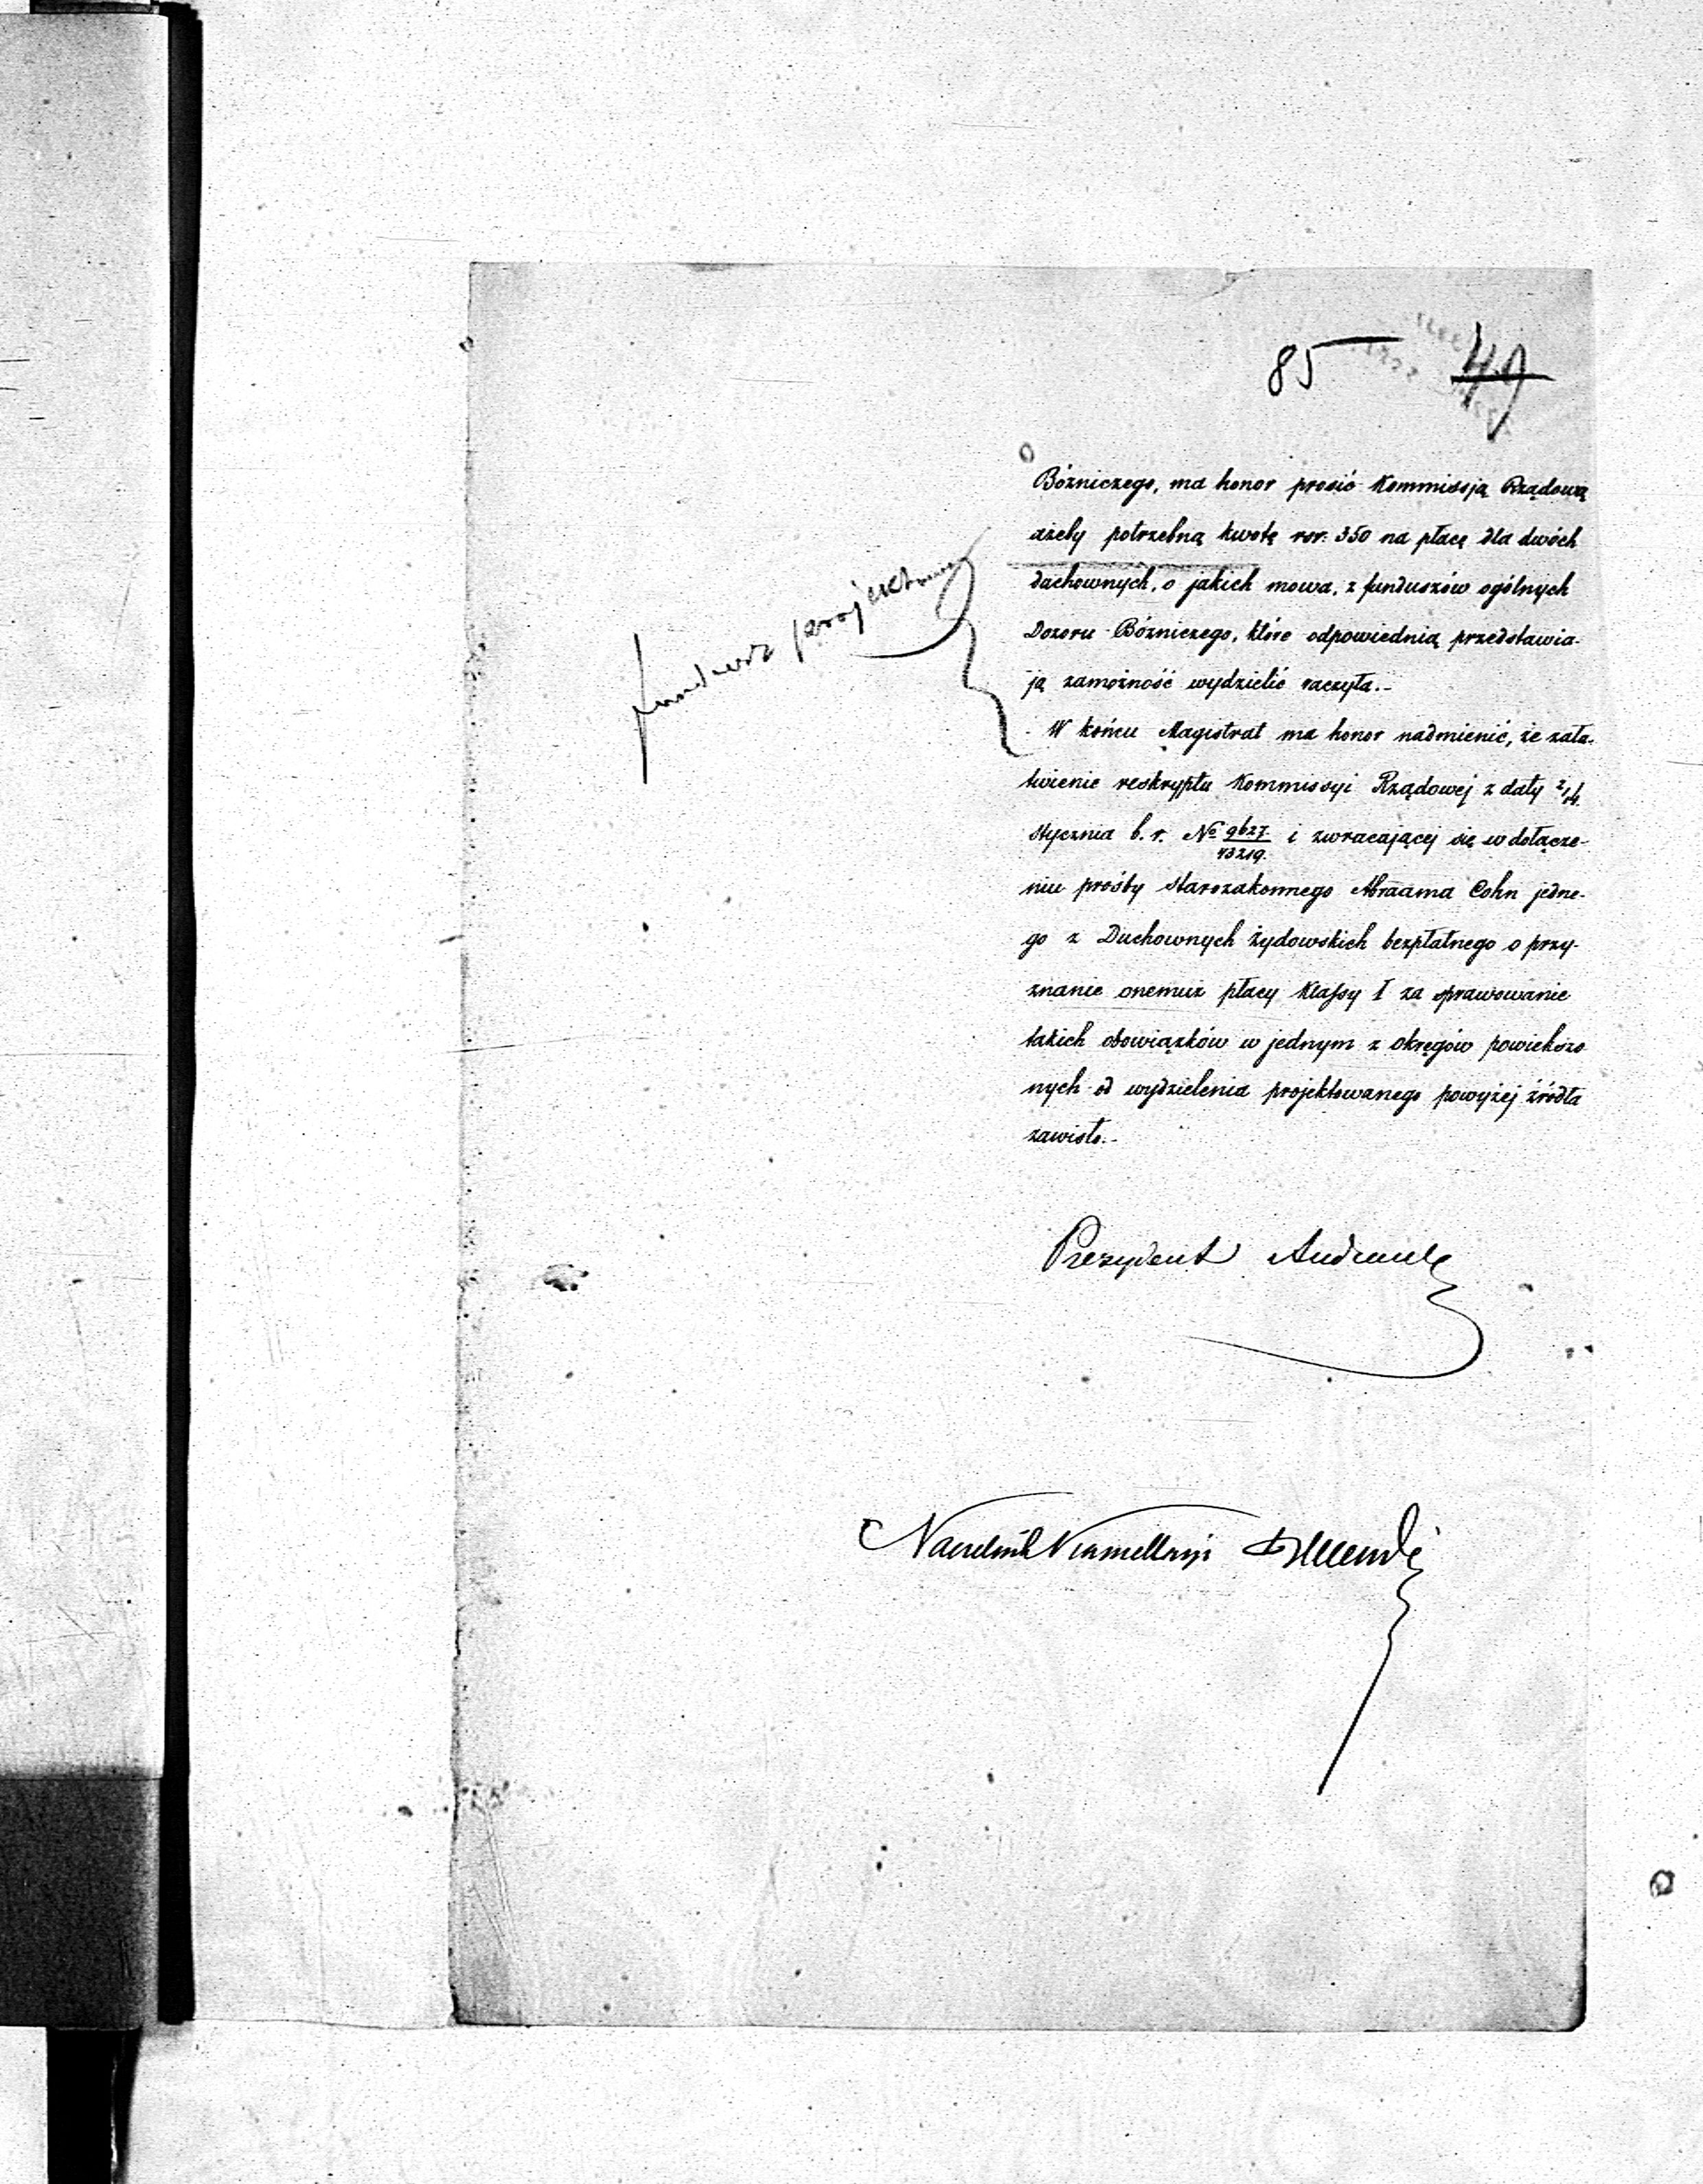 85 49
Bózniczego, ma honor prosić Kommissją Rządową
ażeby potrzebną kwotę rsr. 350 na płacę dla dwóch
duchownych, o jakich mowa, z funduszów ogólnych
Dozoru Bózniczego, które odpowiednią przedstawia-
ją zamożność wydzielić raczyła.-
fundusz projektowany
W końcu Magistrat ma honor nadmienić, że zała-
twienie reskryptu Kommissyi Rządowej z daty 2/14
stycznia b. r. № 9627/43219. i zwracającej się w dołącze-
niu prośby starozakonnego Abraama Cohn jedne-
go z Duchownych żydowskich bezpłatnego o przy-
znanie onemuż płacy Klassy I za sprawowanie
takich obowiązków w jednym z okręgów powiekszo
nych od wydzielenia projektowanego powyżej źródła
zawisło.-
Prezydent
Naczelnik Kancellaryi